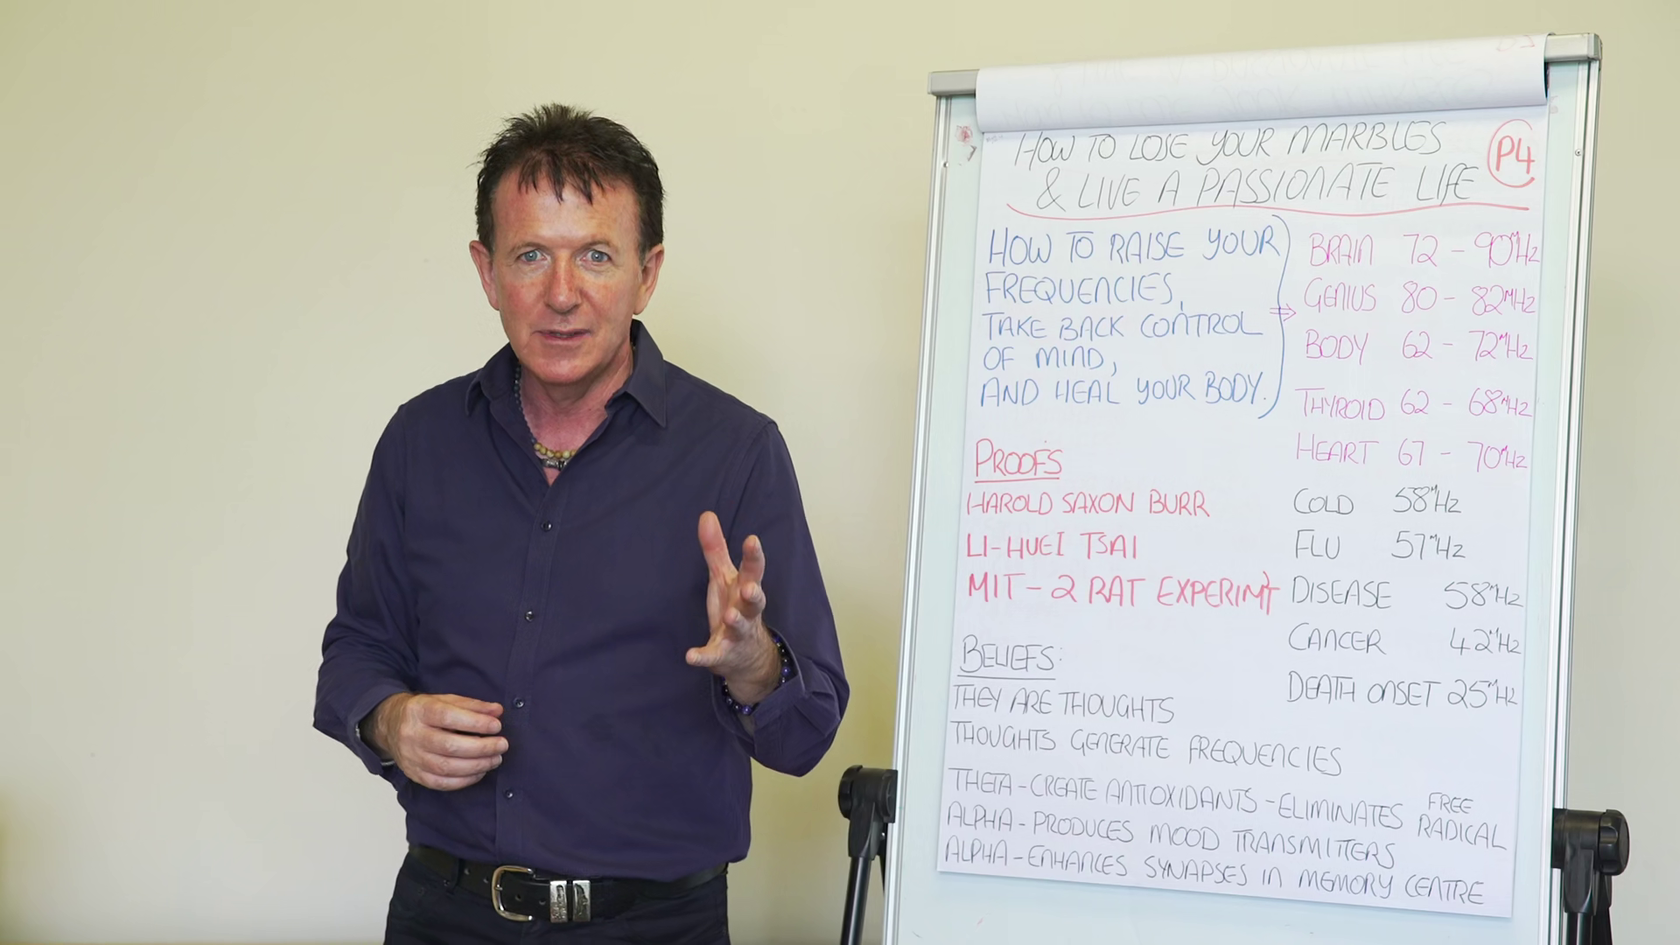 HOW TO LOSE YOUR MARBLES
& LIVE A PASSIONATE LIFE
P4
HOW TO RAISE YOUR
FREQUENCIES,
TAKE BACK CONTROL
OF MIND,
AND HEAL YOUR BODY.
BRAIN 72 - 90MHZ
GENIUS 80 - 82MHZ
BODY 62 - 72MHZ
THYROID 62 - 68MHZ
HEART 67 - 70MHZ
COLD 58MHZ
FLU 57MHZ
DISEASE 58MHZ
CANCER 42MHZ
DEATH ONSET 25MHZ
PROOFS
HAROLD SAXON BURR
LI-HUEI TSAI
MIT - 2 RAT EXPERIMT
BELIEFS:
THEY ARE THOUGHTS
THOUGHTS GENERATE FREQUENCIES
THETA - CREATE ANTIOXIDANTS - ELIMINATES FREE RADICAL
ALPHA - PRODUCES MOOD TRANSMITTERS
ALPHA - ENHANCES SYNAPSES IN MEMORY CENTRE